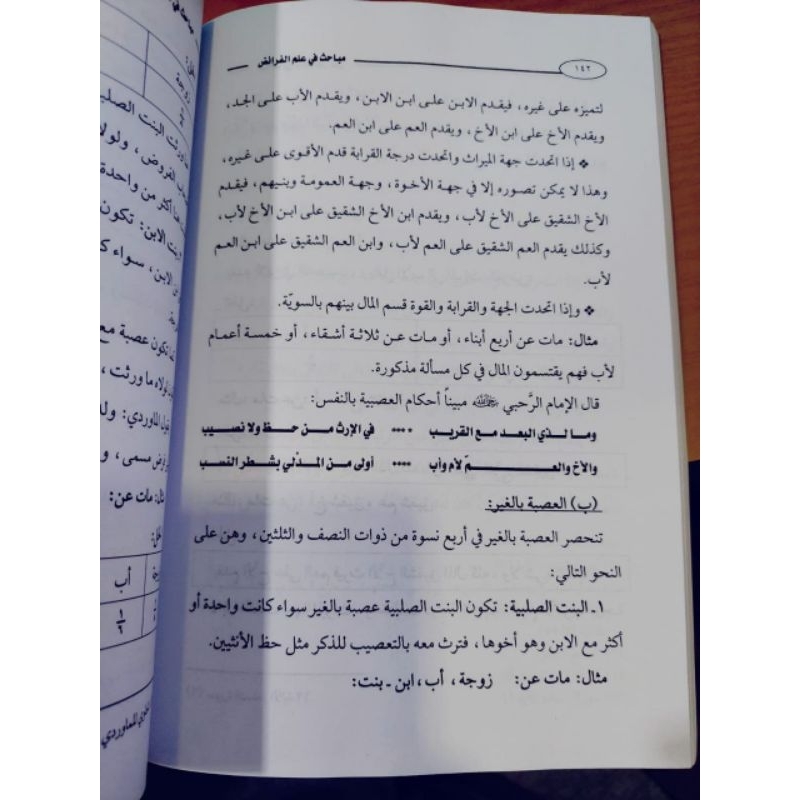 مباحث في علم الفرائض
١٤٢
لتميزه على غيره، فيقدم الابن على ابن الابن، ويقدم الأب على الجد،
ويقدم الأخ على ابن الأخ، ويقدم العم على ابن العم.
❖ إذا اتحدت جهة الميراث واتحدت درجة القرابة قدم الأقوى على غيره،
وهذا لا يمكن تصوره إلا في جهة الأخوة، وجهة العمومة وبنيهم، فيقدم
الأخ الشقيق على الأخ لأب، ويقدم ابن الأخ الشقيق على ابن الأخ لأب،
وكذلك يقدم العم الشقيق على العم لأب، وابن العم الشقيق على ابن العم
لأب.
❖ وإذا اتحدت الجهة والقرابة والقوة قسم المال بينهم بالسويّة.
مثال: مات عن أربع أبناء، أو مات عن ثلاثة أشقاء، أو خمسة أعمام
لأب فهم يقتسمون المال في كل مسألة مذكورة.
قال الإمام الرَّحبي رحمه الله مبيناً أحكام العصبية بالنفس:
وما لذي البعد مع القريب •••• في الإرث من حظ ولا نصيب
والأخ والعـم لأم وأب •••• أولى من المدْلي بشطر النسب
(ب) العصبة بالغير:
تنحصر العصبة بالغير في أربع نسوة من ذوات النصف والثلثين، وهن على
النحو التالي:
١ـ البنت الصلبية: تكون البنت الصلبية عصبة بالغير سواء كانت واحدة أو
أكثر مع الابن وهو أخوها، فترث معه بالتعصيب للذكر مثل حظ الأنثيين.
مثال: مات عن: زوجة، أب، ابن ـ بنت: